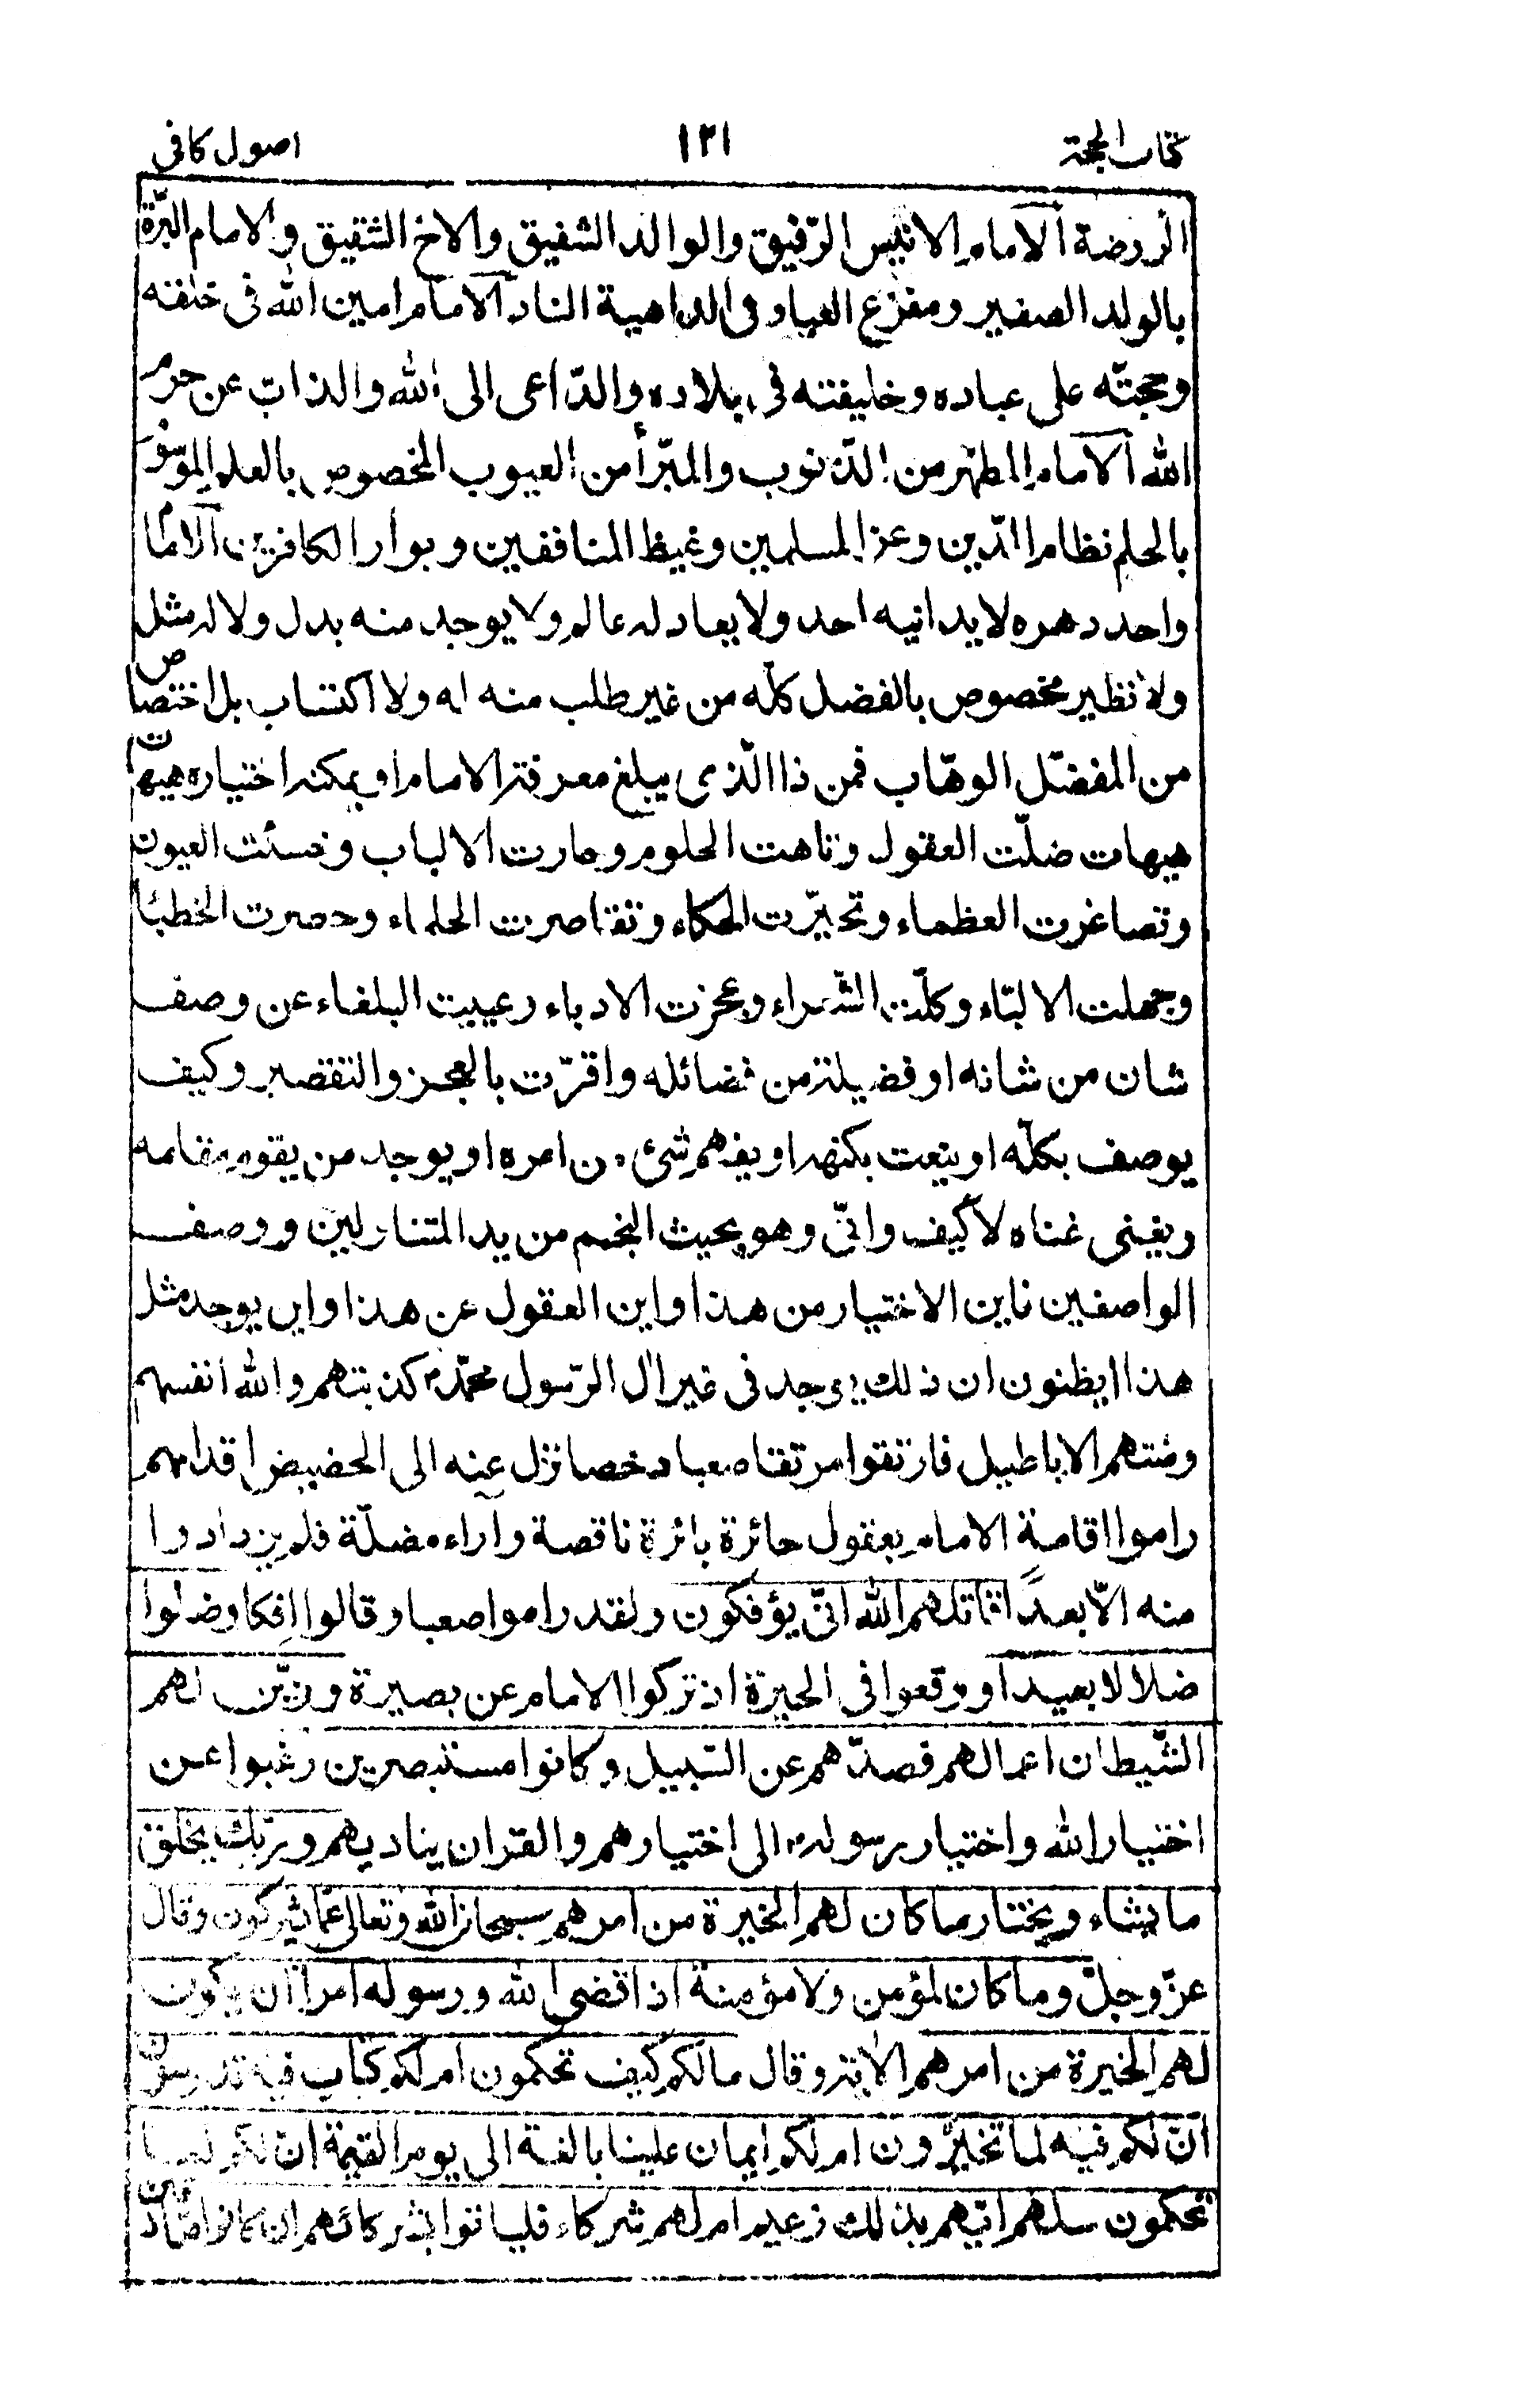 كتاب الحجة ١٢١ اصول كافى
الروضة الامام الانيس الرّفيق والوالد الشفيق والاخ الشقيق والامام البرّة
بالولد الصغير ومفزع العباد فى الداهية الناد الامام امين الله فى خلقه
وحجّته على عباده وخليفته فى بلاده والدّاعى الى الله والذابّ عن حرم
الله الامام المطهّر من الذّنوب والمبرّأ من العيوب المخصوص بالعلم الموسوم
بالحلم نظام الدّين وعز المسلمين وغيظ المنافقين وبوار الكافرين الامام
واحد دهره لا يدانيه احد ولا يعادله عالم ولا يوجد منه بدل ولا له مثل
ولا نظير مخصوص بالفضل كلّه من غير طلب منه له ولا اكتساب بل اختصاص
من المفضّل الوهّاب فمن ذا الّذى يبلغ معرفة الامام او يمكنه اختياره هيهات
هيهات ضلّت العقول وتاهت الحلوم وحارت الالباب وخسئت العيون
وتصاغرت العظماء وتحيّرت الحكماء وتقاصرت الحلماء وحصرت الخطباء
وجهلت الالبّاء وكلّت الشعراء وعجزت الادباء وعييت البلغاء عن وصف
شان من شانه او فضيلة من فضائله واقرّت بالعجز والتقصير وكيف
يوصف بكلّه او ينعت بكنهه او يفهم شئ من امره او يوجد من يقوم مقامه
ويغنى غناه لا كيف وانّى وهو بحيث النجم من يد المتناولين ووصف
الواصفين فاين الاختيار من هذا واين العقول عن هذا واين يوجد مثل
هذا ايظنون ان ذلك يوجد فى غير ال الرّسول محمّد م كذبتهم والله انفسهم
ومنتهم الاباطيل فارتقوا مرتقا صعبا دحضا تزل عنه الى الحضيض اقدامهم
راموا اقامة الامام بعقول حائرة بائرة ناقصة وآراء مضلّة فلم يزدادوا
منه الّا بعدًا قاتلهم الله انّى يؤفكون ولقد راموا صعبا وقالوا افكا وضلوا
ضلالا بعيدا ووقعوا فى الحيرة اذ تركوا الامام عن بصيرة وزيّن لهم
الشّيطان اعمالهم فصدّهم عن السّبيل وكانوا مستبصرين رغبوا عن
اختيار الله واختيار رسوله م الى اختيارهم والقران يناديهم وربّك يخلق
ما يشاء ويختار ما كان لهم الخيرة من امرهم سبحان الله وتعالى عمّا يشركون وقال
عزّ وجلّ وما كان لمؤمن ولا مؤمنة اذا قضى الله ورسوله امرا ان يكون
لهم الخيرة من امرهم الاية وقال مالكم كيف تحكمون ام لكم كتاب فيه تدرسون
انّ لكم فيه لما تخيّرون ام لكم ايمان علينا بالغة الى يوم القيمة انّ لكم لما
تحكمون سلهم ايّهم بذلك زعيم ام لهم شركاء فلياتوا بشركائهم ان كانوا صادقين